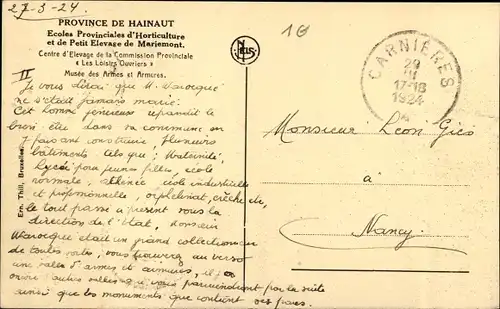 27-3-24.
PROVINCE DE HAINAUT
Ecoles Provinciales d'Horticulture
et de Petit Elevage de Mariemont.
Centre d'Elevage de la Commission Provinciale
« Les Loisirs Ouvriers »
Musée des Armes et Armures.
II
Je vous dirai que M. Warocqué
ne s'était jamais marié.
Cet homme généreux répandit le
bien être dans sa commune en
faisant construire plusieurs
bâtiments tels que: Maternité,
Lycée pour jeunes filles, école
normale, athénée, école industrielle
et professionnelle, orphelinat, crèche etc,
le tout passe à présent sous la
direction de l'Etat, Monsieur
Warocqué était un grand collectionneur
de toutes sortes, vous trouverez au verso
une salle d'armes et armures, il y a
encore autres salles que vous parviendront par la suite
ainsi que les monuments que contient ses parcs.
Ern. Thill, Bruxelles
1G
CARNIÈRES
29
III
17-18
1924
Monsieur Léon
à
Nancy.